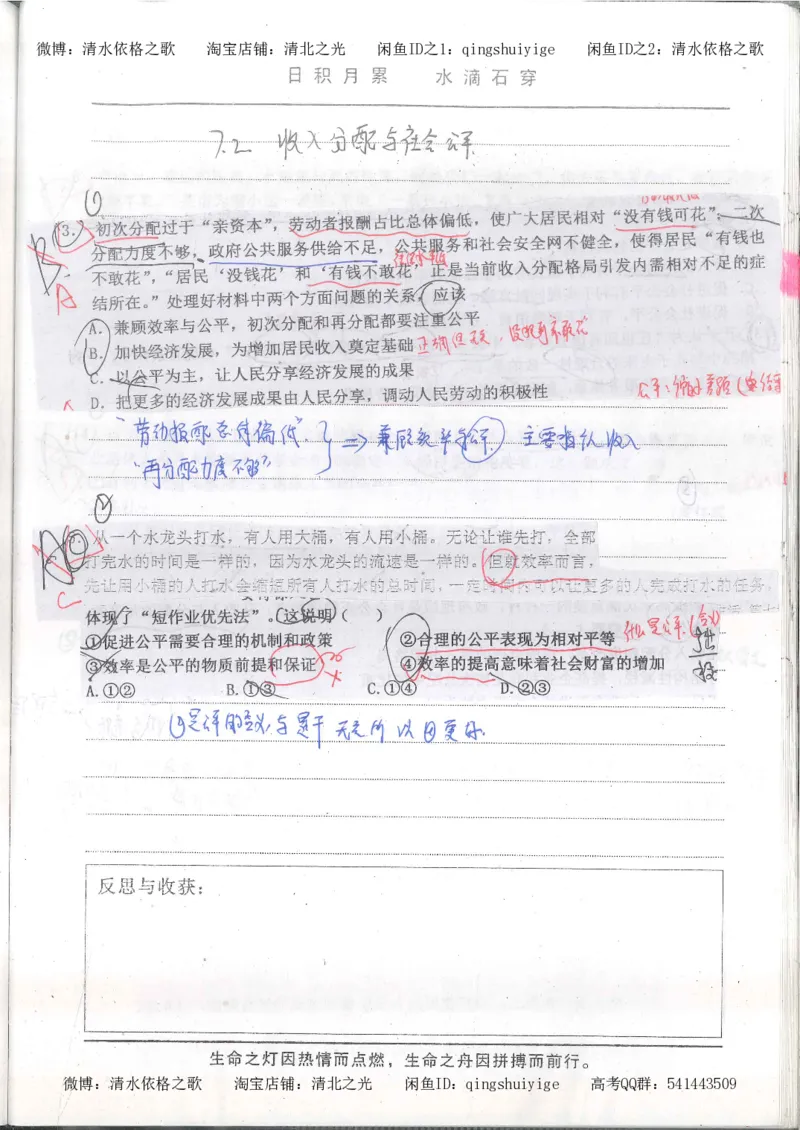 微博：清水依格之歌 淘宝店铺：清北之光 闲鱼ID之1：qingshuiyige 闲鱼ID之2：清水依格之歌
日积月累 水滴石穿
7.2 收入分配与社会公平
①
3. 初次分配过于“亲资本”，劳动者报酬占比总体偏低，使广大居民相对“没有钱可花”；二次
分配力度不够，政府公共服务供给不足，公共服务和社会安全网不健全，使得居民“有钱也
不敢花”，“居民‘没钱花’和‘有钱不敢花’正是当前收入分配格局引发内需相对不足的症
结所在。”处理好材料中两个方面问题的关系，应该
B
A
A．兼顾效率与公平，初次分配和再分配都要注重公平
B．加快经济发展，为增加居民收入奠定基础 正确但
C．以公平为主，让人民分享经济发展的成果
公平：缩小差距
D．把更多的经济发展成果由人民分享，调动人民劳动的积极性
“劳动报酬总体偏低”
⇒ 兼顾效率与公平 主要指收入
“再分配力度不够”
②
从一个水龙头打水，有人用大桶，有人用小桶。无论让谁先打，全部
打完水的时间是一样的，因为水龙头的流速是一样的。但就效率而言，
先让用小桶的人打水会缩短所有人打水的总时间，一定时间内可以让更多的人完成打水的任务，
C
体现了“短作业优先法”。这说明（ ）
①促进公平需要合理的机制和政策 ②合理的公平表现为相对平等 什么是公平(含义)
③效率是公平的物质前提和保证 ④效率的提高意味着社会财富的增加
A. ①② B. ①③ C. ①④ D. ②③
反思与收获：
生命之灯因热情而点燃，生命之舟因拼搏而前行。
微博：清水依格之歌 淘宝店铺：清北之光 闲鱼ID：qingshuiyige 高考QQ群：541443509